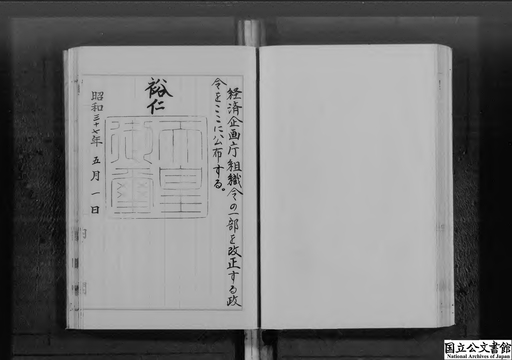 経済企画庁組織令の一部を改正する政
令をここに公布する。
裕仁
天皇
御璽
昭和三十七年五月一日
国立公文書館
National Archives of Japan